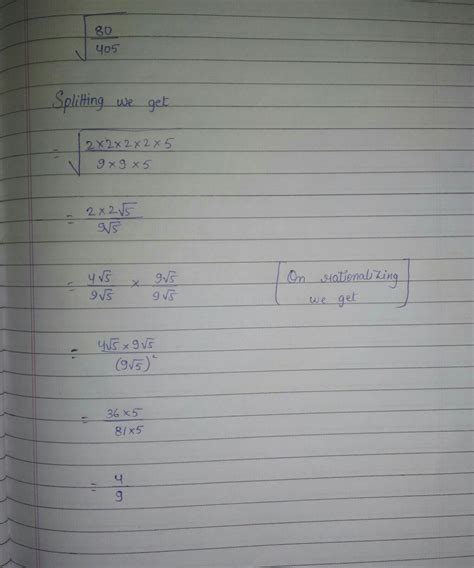 √(80/405)
Splitting we get
= √((2×2×2×2×5)/(9×9×5))
= (2×2√5)/(9√5)
= (4√5)/(9√5) × (9√5)/(9√5) [On rationalizing we get]
= (4√5×9√5)/(9√5)²
= (36×5)/(81×5)
= 4/9